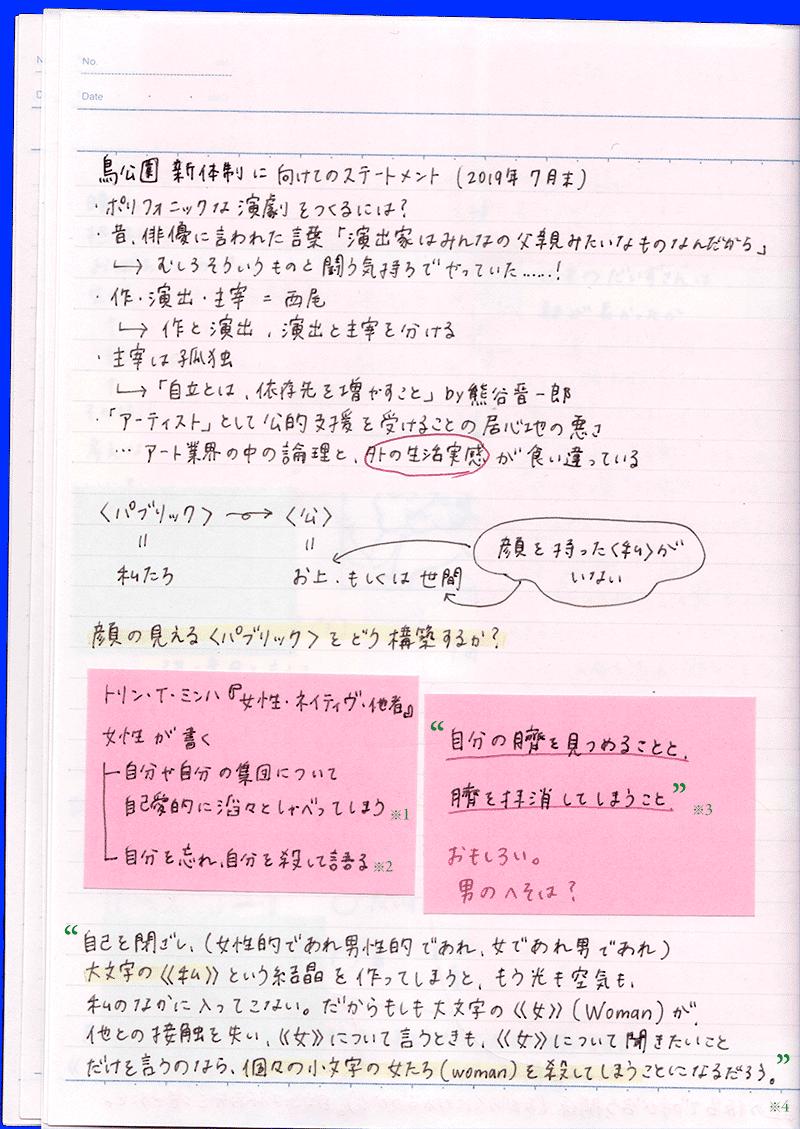 No.
Date
鳥公園 新体制に向けてのステートメント (2019年7月末)
・ポリフォニックな演劇をつくるには?
・昔、俳優に言われた言葉「演出家はみんなの父親みたいなものなんだから」
↳ むしろそういうものと闘う気持ちでやっていた……!
・作・演出・主宰 = 西尾
↳ 作と演出、演出と主宰を分ける
・主宰は孤独
↳「自立とは、依存先を増やすこと」by熊谷晋一郎
・「アーティスト」として公的支援を受けることの居心地の悪さ
… アート業界の中の論理と、外の生活実感が食い違っている
〈パブリック〉 〈公〉
= =
私たち お上、もしくは世間
顔を持った〈私〉が
いない
顔の見える〈パブリック〉をどう構築するか?
トリン・T・ミンハ『女性・ネイティヴ・他者』
女性が書く
自分や自分の集団について
自己愛的に滔々としゃべってしまう ※1
自分を忘れ、自分を殺して語る ※2
“自分の臍を見つめることと、
臍を抹消してしまうこと„ ※3
おもしろい。
男のへそは?
“自己を閉ざし、(女性的であれ男性的であれ、女であれ男であれ)
大文字の《私》という結晶を作ってしまうと、もう光も空気も、
私のなかに入ってこない。だからもしも大文字の《女》(Woman)が、
他との接触を失い、《女》について言うときも、《女》について聞きたいこと
だけを言うのなら、個々の小文字の女たち(woman)を殺してしまうことになるだろう。”
※4